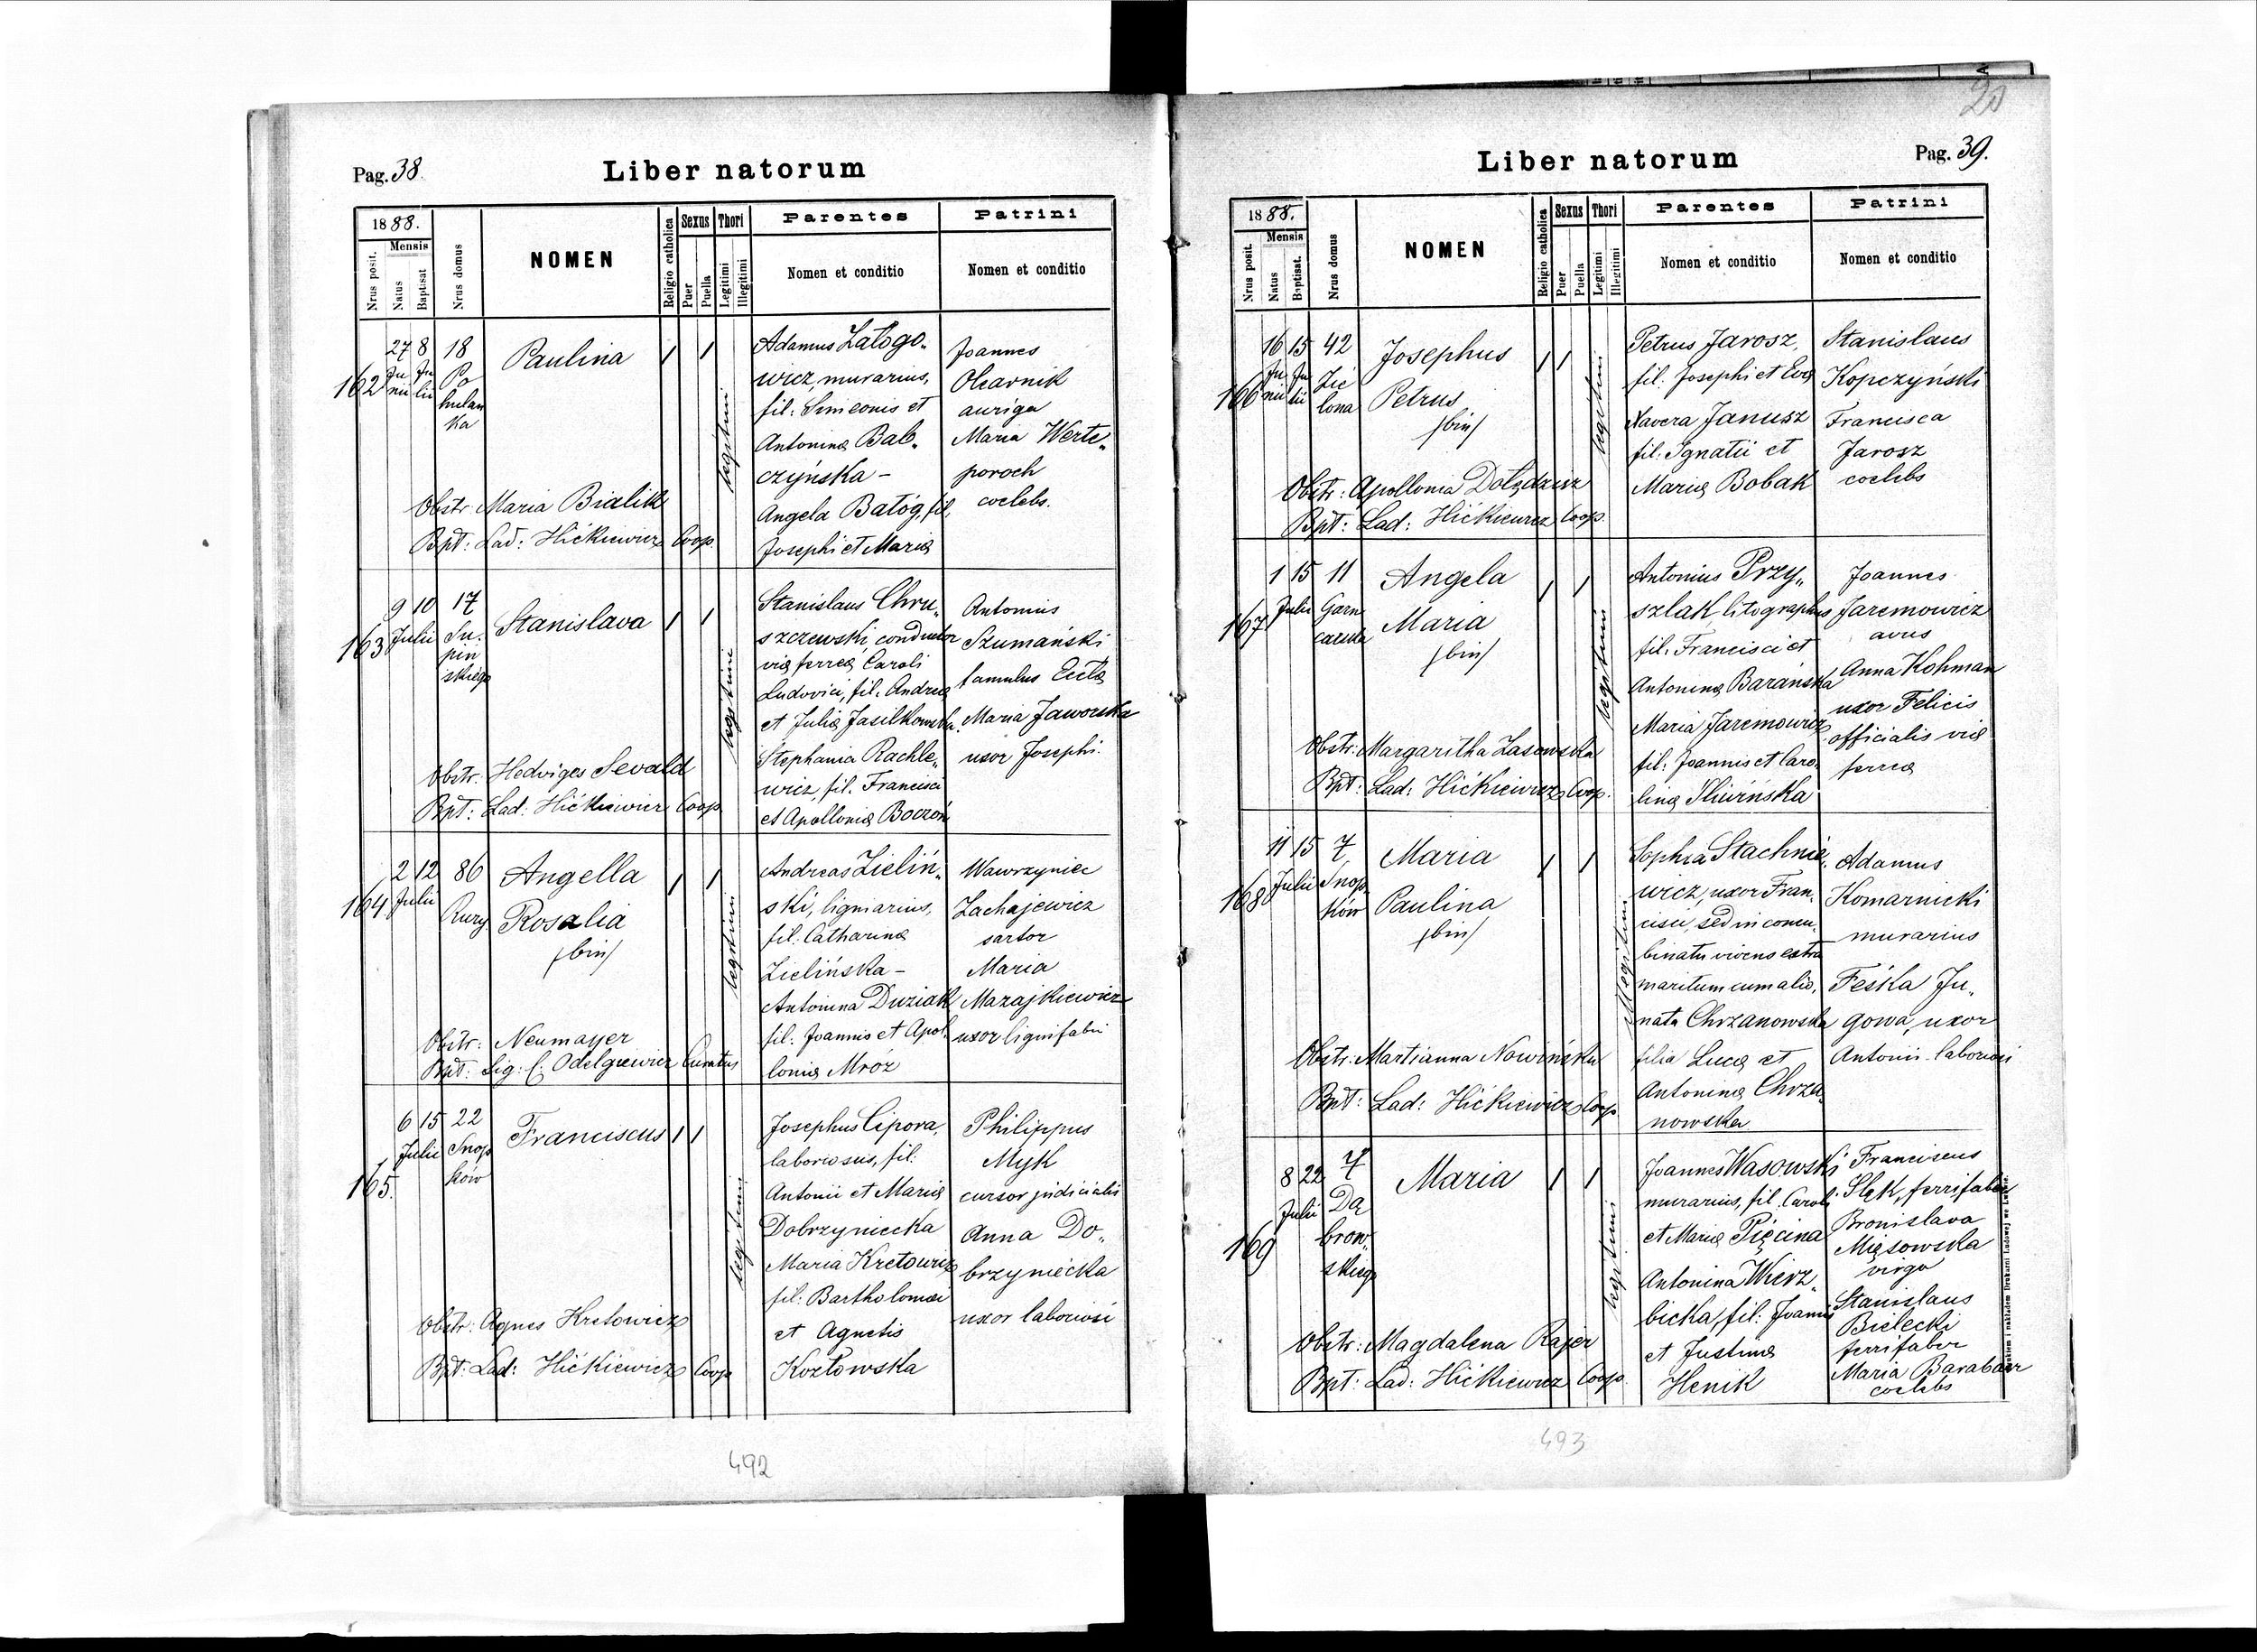 Pag. 38.
Liber natorum
1888.
Mensis
Nrus posit.
Natus
Baptisat
Nrus domus
NOMEN
Religio catholica
Sexus
Puer
Puella
Thori
Legitimi
Illegitimi
Parentes
Nomen et conditio
Patrini
Nomen et conditio
162
27 8 18
Ju Ju Po
nii lii hulan
ka
Paulina
legitimi
Adamus Załogo„
wicz, murarius,
fil: Simeonis et
Antoninæ Bab„
czyńska –
Angela Batóg, fil,
Josephi et Mariæ
Joannes
Olearnik
auriga
Maria Werte„
poroch
coelebs.
Obstr Maria Bialik
Bpt: Lad: Hićkiewicz Coop.
163
9 10 17
Julii Su.
piń
skiego
Stanislava
legitimi
Stanislaus Chru„
szczewski, conductor
viæ ferreæ Caroli
Ludovici, fil. Andreæ
et Juliæ Jasilkowska.
Stephania Rachle„
wicz fil. Francisci
et Apolloniæ Boczoń
Antonius
Szumański
famulus Eccłæ
Maria Jaworska
uxor Josephi.
Obstr. Hedviges Sevald
Bpt: Lad: Hićkiewicz Coop
164
2 12 86
Julii
Rury
Angella
Rosalia
/bin/
legitimi
Andreas Zieliń„
ski, lignarius,
fil. Catharinæ
Zielińska –
Antonina Duziak
fil: Joannis et Apol.
loniæ Mróz
Wawrzyniec
Zachajewicz
sartor
Maria
Mazajkiewicz
uxor lignifabri
Obstr: Neumayer
Bpt: Sig: C: Odelgiewicz Curatus
165.
6 15 22
Julii Snop
ków
Franciscus
legitimi
Josephus Cipora,
laboriosus, fil:
Antonii et Mariæ
Dobrzyniecka
Maria Kretowicz
fil: Bartholomæi
et Agnetis
Kozłowska
Philippus
Myk
cursor judicialis
Anna Do„
brzyniecka
uxor laboriosi
Obstr: Agnes Kretowicz
Bpt: Lad: Hićkiewicz Coop
492
20
Liber natorum
Pag. 39.
1888.
Mensis
Nrus posit.
Natus
Baptisat.
Nrus domus
NOMEN
Religio catholica
Sexus
Puer
Puella
Thori
Legitimi
Illegitimi
Parentes
Nomen et conditio
Patrini
Nomen et conditio
166
16 15 42
Ju Ju Zie
nii lii lona
Josephus
Petrus
/bin/
legitimi
Petrus Jarosz,
fil: Josephi et Evæ
Xavera Janusz
fil: Ignatii et
Mariæ Bobak
Stanislaus
Kopczyński
Francisca
Jarosz
coelebs
Obstr: Apollonia
Bpt: Lad: Hićkiewicz Coop.
167
1 15 11
Julii Garn
carska
Angela
Maria
/bin/
legitimi
Antonius Przy„
szlak, litographus
fil. Francisci et
Antoninæ Barańska
Maria Jaremowicz
fil: Joannis et Caro„
linæ Śliwińska
Joannes
Jaremowicz
avus
Anna Kohman
uxor Felicis
officialis viæ
ferreæ
Obstr: Margaritha Lasowska
Bpt: Lad: Hićkiewicz Coop.
168
11 15 7
Julii Snop
ków
Maria
Paulina
/bin/
illegitimi
Sophia Stachnie„
wicz, uxor Fran„
cisci, sed in concu„
binatu vivens extra
maritum cum alio,
nata Chrzanowska
filia Lucæ et
Antoninæ Chrza„
nowska
Adamus
Komarnicki
murarius
Feśka Ju„
gowa, uxor
Antonii laboriosi
Obstr: Martianna Nowińska
Bpt: Lad: Hićkiewicz Coop
169
8 22 7
Julii Dą
brow„
skiego
Maria
legitimi
Joannes Wasowski
murarius, fil. Caroli
et Mariæ Pięcina
Antonina Wierz„
bicka, fil: Joannis
et Justinæ
Henik
Franciscus
Slęk, ferrifaber
Bronislava
Mięsowska
virgo
Stanislaus
Bielecki
ferrifaber
Maria Barabasz
coelebs
Obstr: Magdalena Rajer
Bpt: Lad: Hićkiewicz Coop.
493